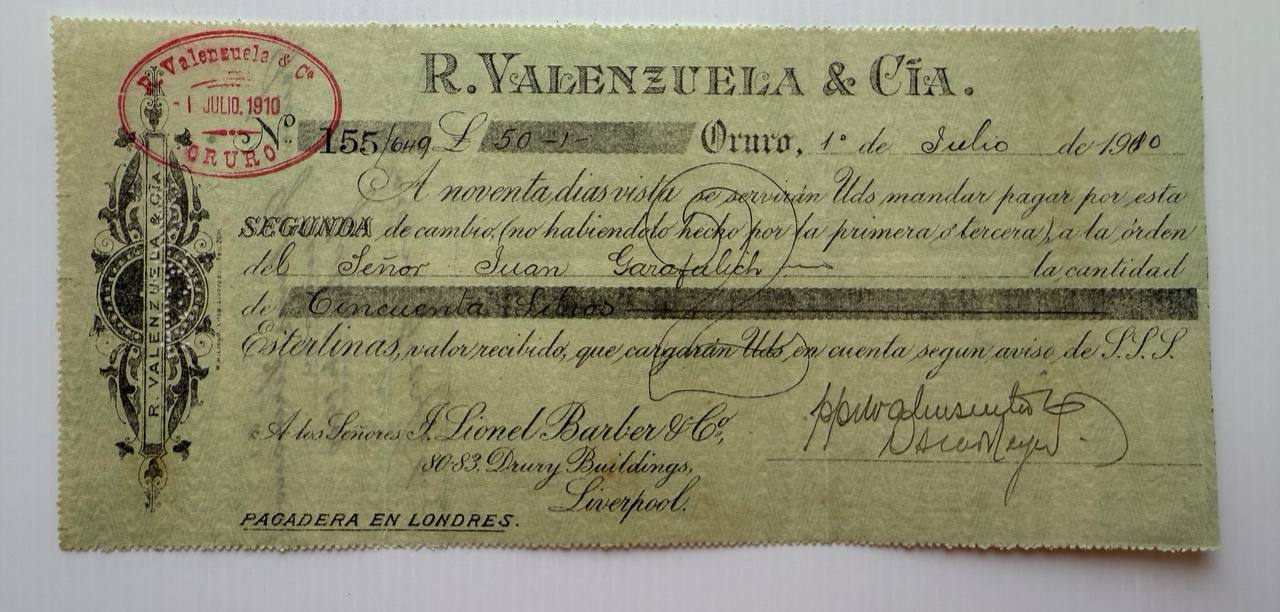 R. VALENZUELA & CÍA.
R. Valenzuela & Cª
- 1 JULIO. 1910
ORURO
Nº 155/649 £ 50-1- Oruro, 1º de Julio de 1910
A noventa dias vista se servirán Uds mandar pagar por esta
SEGUNDA de cambio, (no habiendolo hecho por la primera ó tercera), a la órden
del Señor Juan Garafulich la cantidad
de Cincuenta Libras
Esterlinas, valor recibido, que cargarán Uds en cuenta segun aviso de S.S.S.
2
A los Señores J. Lionel Barber & Cº,
80-83. Drury Buildings,
Liverpool.
PAGADERA EN LONDRES.
R. VALENZUELA & CÍA.